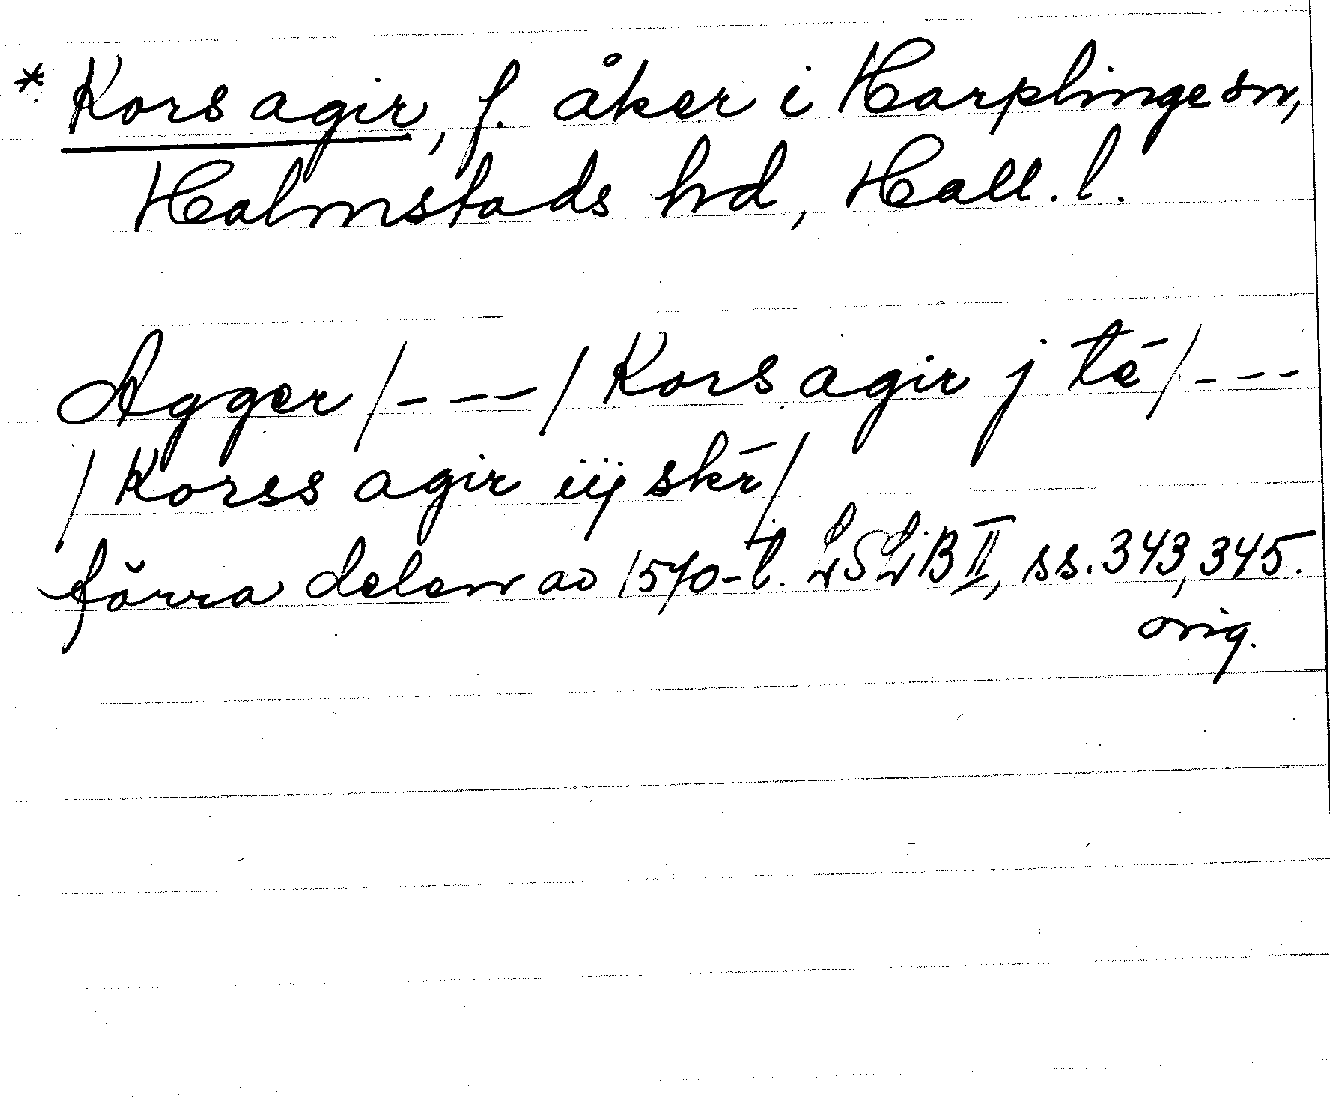 * Kors agir, f. åker i Harplinge sn,
Halmstads hd, Hall. l.
Agger / - - - / Kors agir j tē / - - -
/ Korss agir iij skr̄ /
förra delen av 1570-t. LSLB II, ss. 343, 345.
orig.